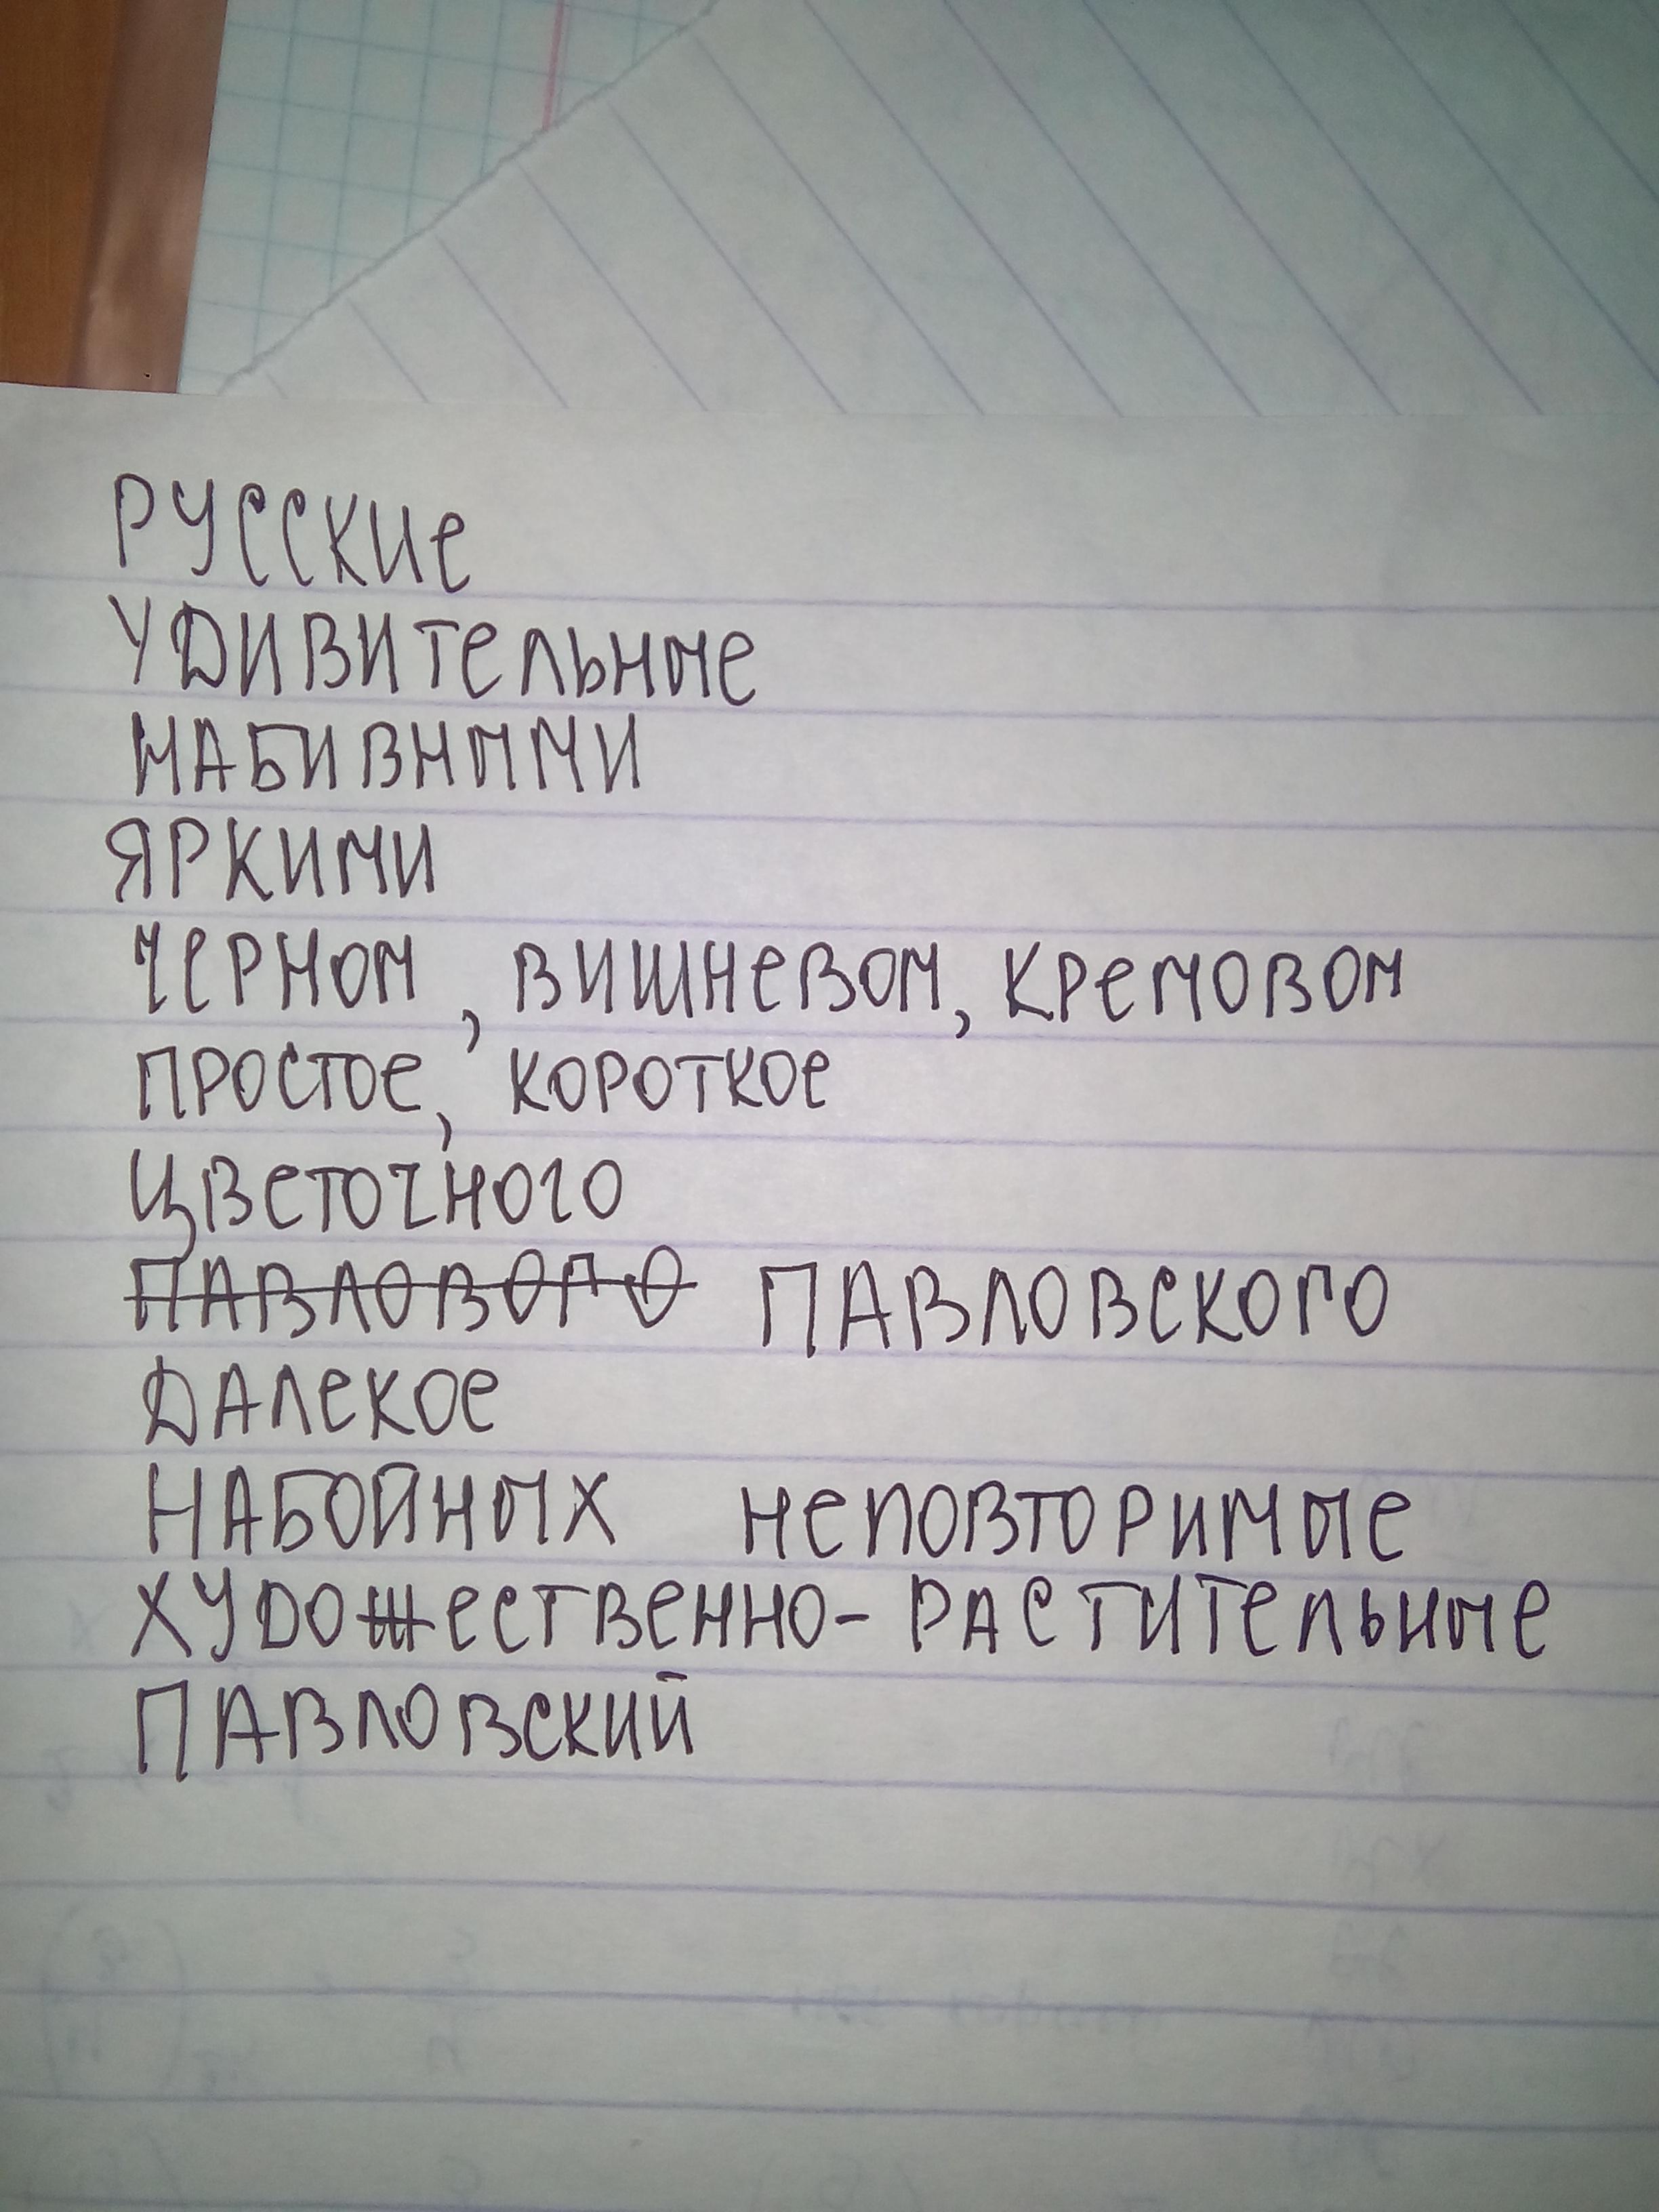 РУССКИЕ
УДИВИТЕЛЬНЫЕ
НАБИВНЫМИ
ЯРКИМИ
ЧЕРНОМ, ВИШНЕВОМ, КРЕМОВОМ
ПРОСТОЕ, КОРОТКОЕ
ЦВЕТОЧНОГО
ПАВЛОВОГО ПАВЛОВСКОГО
ДАЛЕКОЕ
НАБОЙНЫХ НЕПОВТОРИМЫЕ
ХУДОЖЕСТВЕННО-РАСТИТЕЛЬНЫЕ
ПАВЛОВСКИЙ